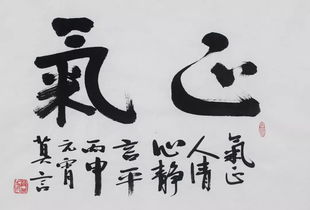 正氣
氣正
人清
心静
言平
丙申
元宵
莫言